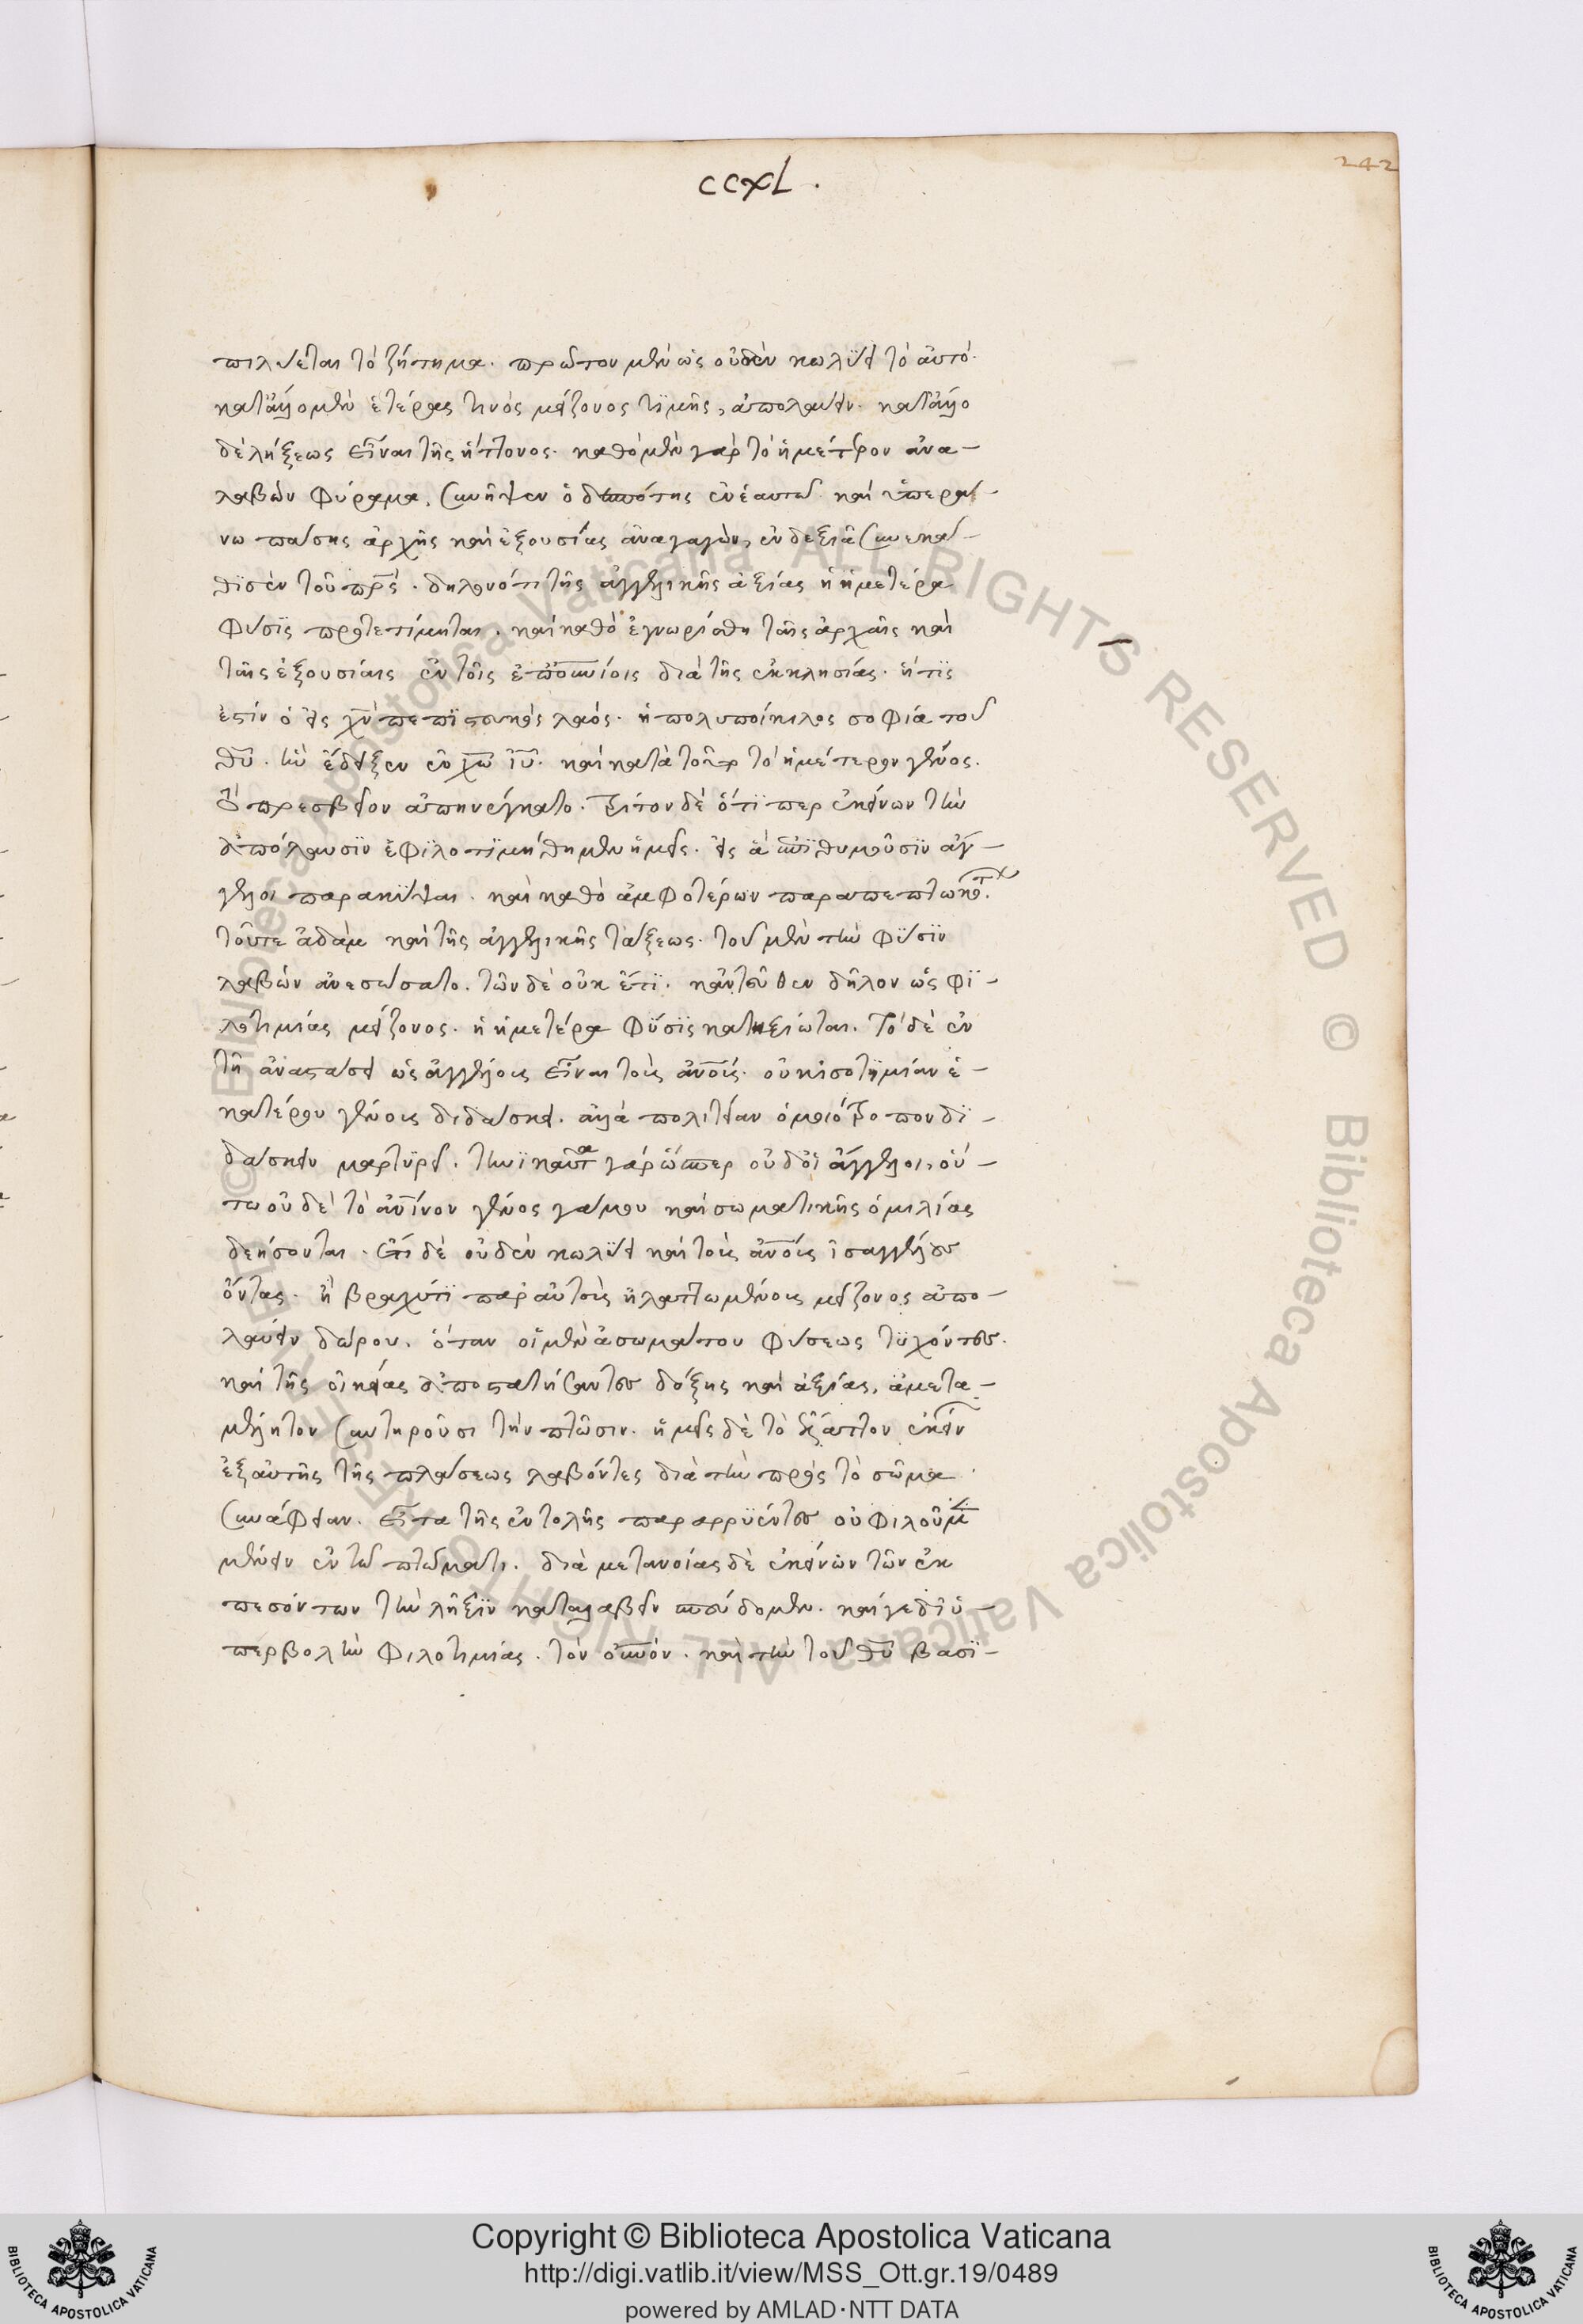 CCXL.
242
πιλύεται τὸ ζήτημα. πρῶτον μὲν ὡς οὐδὲν κωλύει τὸ αὐτὸ.
κατ' ἄλλο μὲν ἑτέρας τινὸς μείζονος τϊμῆς, ἀπολαύειν. κατ' ἄλλο
δὲ λήξεως εἶναι τῆς ἥττονος. καθὸ μὲν γὰρ τὸ ἡμέτερον ἀνα-
λαβὼν φύραμα, συνῆψεν ὁ δεσπότης ἐν ἑαυτῶ καὶ ὑπερά-
νω πάσης ἀρχῆς καὶ ἐξουσίας ἀναγαγὼν, ἐν δεξιᾶ συνεκά-
θϊσεν τοῦ πρς. δηλονότι τῆς ἀγγελικῆς ἀξίας ἡ ἡμετέρα
φύσϊς προτετίμηται. καὶ καθὸ ἐγνωρίσθη ταῖς ἀρχαῖς καὶ
ταῖς ἐξουσίαις ἐν τοῖς ἐπουνίοις διὰ τῆς ἐκκλησίας. ἥτϊς
ἐστὶν ὁ εἰς χν πεπϊστευκὼς λαός. ἡ πολυποίκιλος σοφία τοῦ
θυ. ἣν ἔδειξεν ἐν χω ιυ. καὶ κατὰ τοῦτο τὸ ἡμέτερον γένος.
τὸ πρεσβεῖον ἀπηνέγκατο. τρίτον δὲ ὅτϊ περ ἐκείνων τὴν
ἀπόλαυσϊν ἐφϊλοτϊμήθημεν ἡμεῖς. εἰς ἃ ἐπϊθυμοῦσϊν ἄγ-
γελοι παρακύψαι. καὶ καθὸ ἀμφοτέρων παραπεπτωκότ
τοῦτε ἀδὰμ καὶ τῆς ἀγγελικῆς τάξεως. τοῦ μὲν τὴν φύσϊν
λαβὼν ἀνεσώσατο. τῶν δὲ οὐκ ἔτϊ. κἀντεῦθεν δῆλον ὡς φϊ-
λοτιμίας μείζονος. ἡ ἡμετέρα φύσϊς κατηξίωται. Τὸ δὲ ἐν
τῆ ἀναστάσει ὡς ἀγγέλοις εἶναι τοῖς ἀνοις. οὐκ ἰσοτϊμίαν ἑ-
κατέρου γένοις διδάσκει. ἀλλὰ πολιτείαν ὁμοιότροπον δϊ-
δάσκειν μαρτύρει. τηνϊκαῦτα γὰρ ὥσπερ οὐδ' οἱ ἄγγελοι, οὕ-
τω οὐδὲ τὸ ἀνινον γένος γάμου καὶ σωματικῆς ὁμιλίας
δεήσονται. ἔτι δὲ οὐδὲν κωλύει καὶ τοῖς ἀνοις ἰσαγγέλους
ὄντας. ἢ βραχύτϊ παρ' αὐτοῖς ἠλαττωμένοις μείζονος ἀπο-
λαύειν δώρου. ὅταν οἱ μὲν ἀσωμάτου φύσεως τυχόντες.
καὶ τῆς οἰκείας ἀποστατήσαντες δόξης καὶ ἀξίας, ἀμετα-
μέλητον συντηροῦσι τὴν πτῶσιν. ἡμεῖς δὲ τὸ ἐξάπτον ἐκεῖν
ἐξ αὐτῆς τῆς πλάσεως λαβόντες διὰ τὴν πρὸς τὸ σῶμα
συνάφειαν. εἶτα τῆς ἐντολῆς παραρρϋέντες οὐ φιλοῦμεν
μένειν ἐν τῶ πτώματι. διὰ μετανοίας δὲ ἐκείνων τῶν ἐκ
πεσόντων τὴν λῆξϊν καταλαβεῖν σπεύδομεν. καίγε δι' ὑ-
περβολὴν φιλοτιμίας. τὸν οὐνόν. καὶ τὴν τοῦ θυ βασϊ-
© Biblioteca Apostolica Vaticana ALL RIGHTS RESERVED © Biblioteca Apostolica Vaticana ALL RIGHTS RESERVED
Copyright © Biblioteca Apostolica Vaticana
http://digi.vatlib.it/view/MSS_Ott.gr.19/0489
powered by AMLAD·NTT DATA
BIBLIOTECA APOSTOLICA VATICANA
BIBLIOTECA APOSTOLICA VATICANA